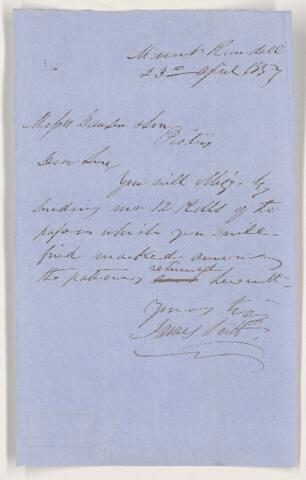 Mount Rundell
23rd April 1857
Messrs Dawson & Son
Pictou
Dear Sirs
You will oblige by
sending me 12 Rolls of the
paper which you will
find marked among
the patterns returned herewith
Yours truly
James Scott